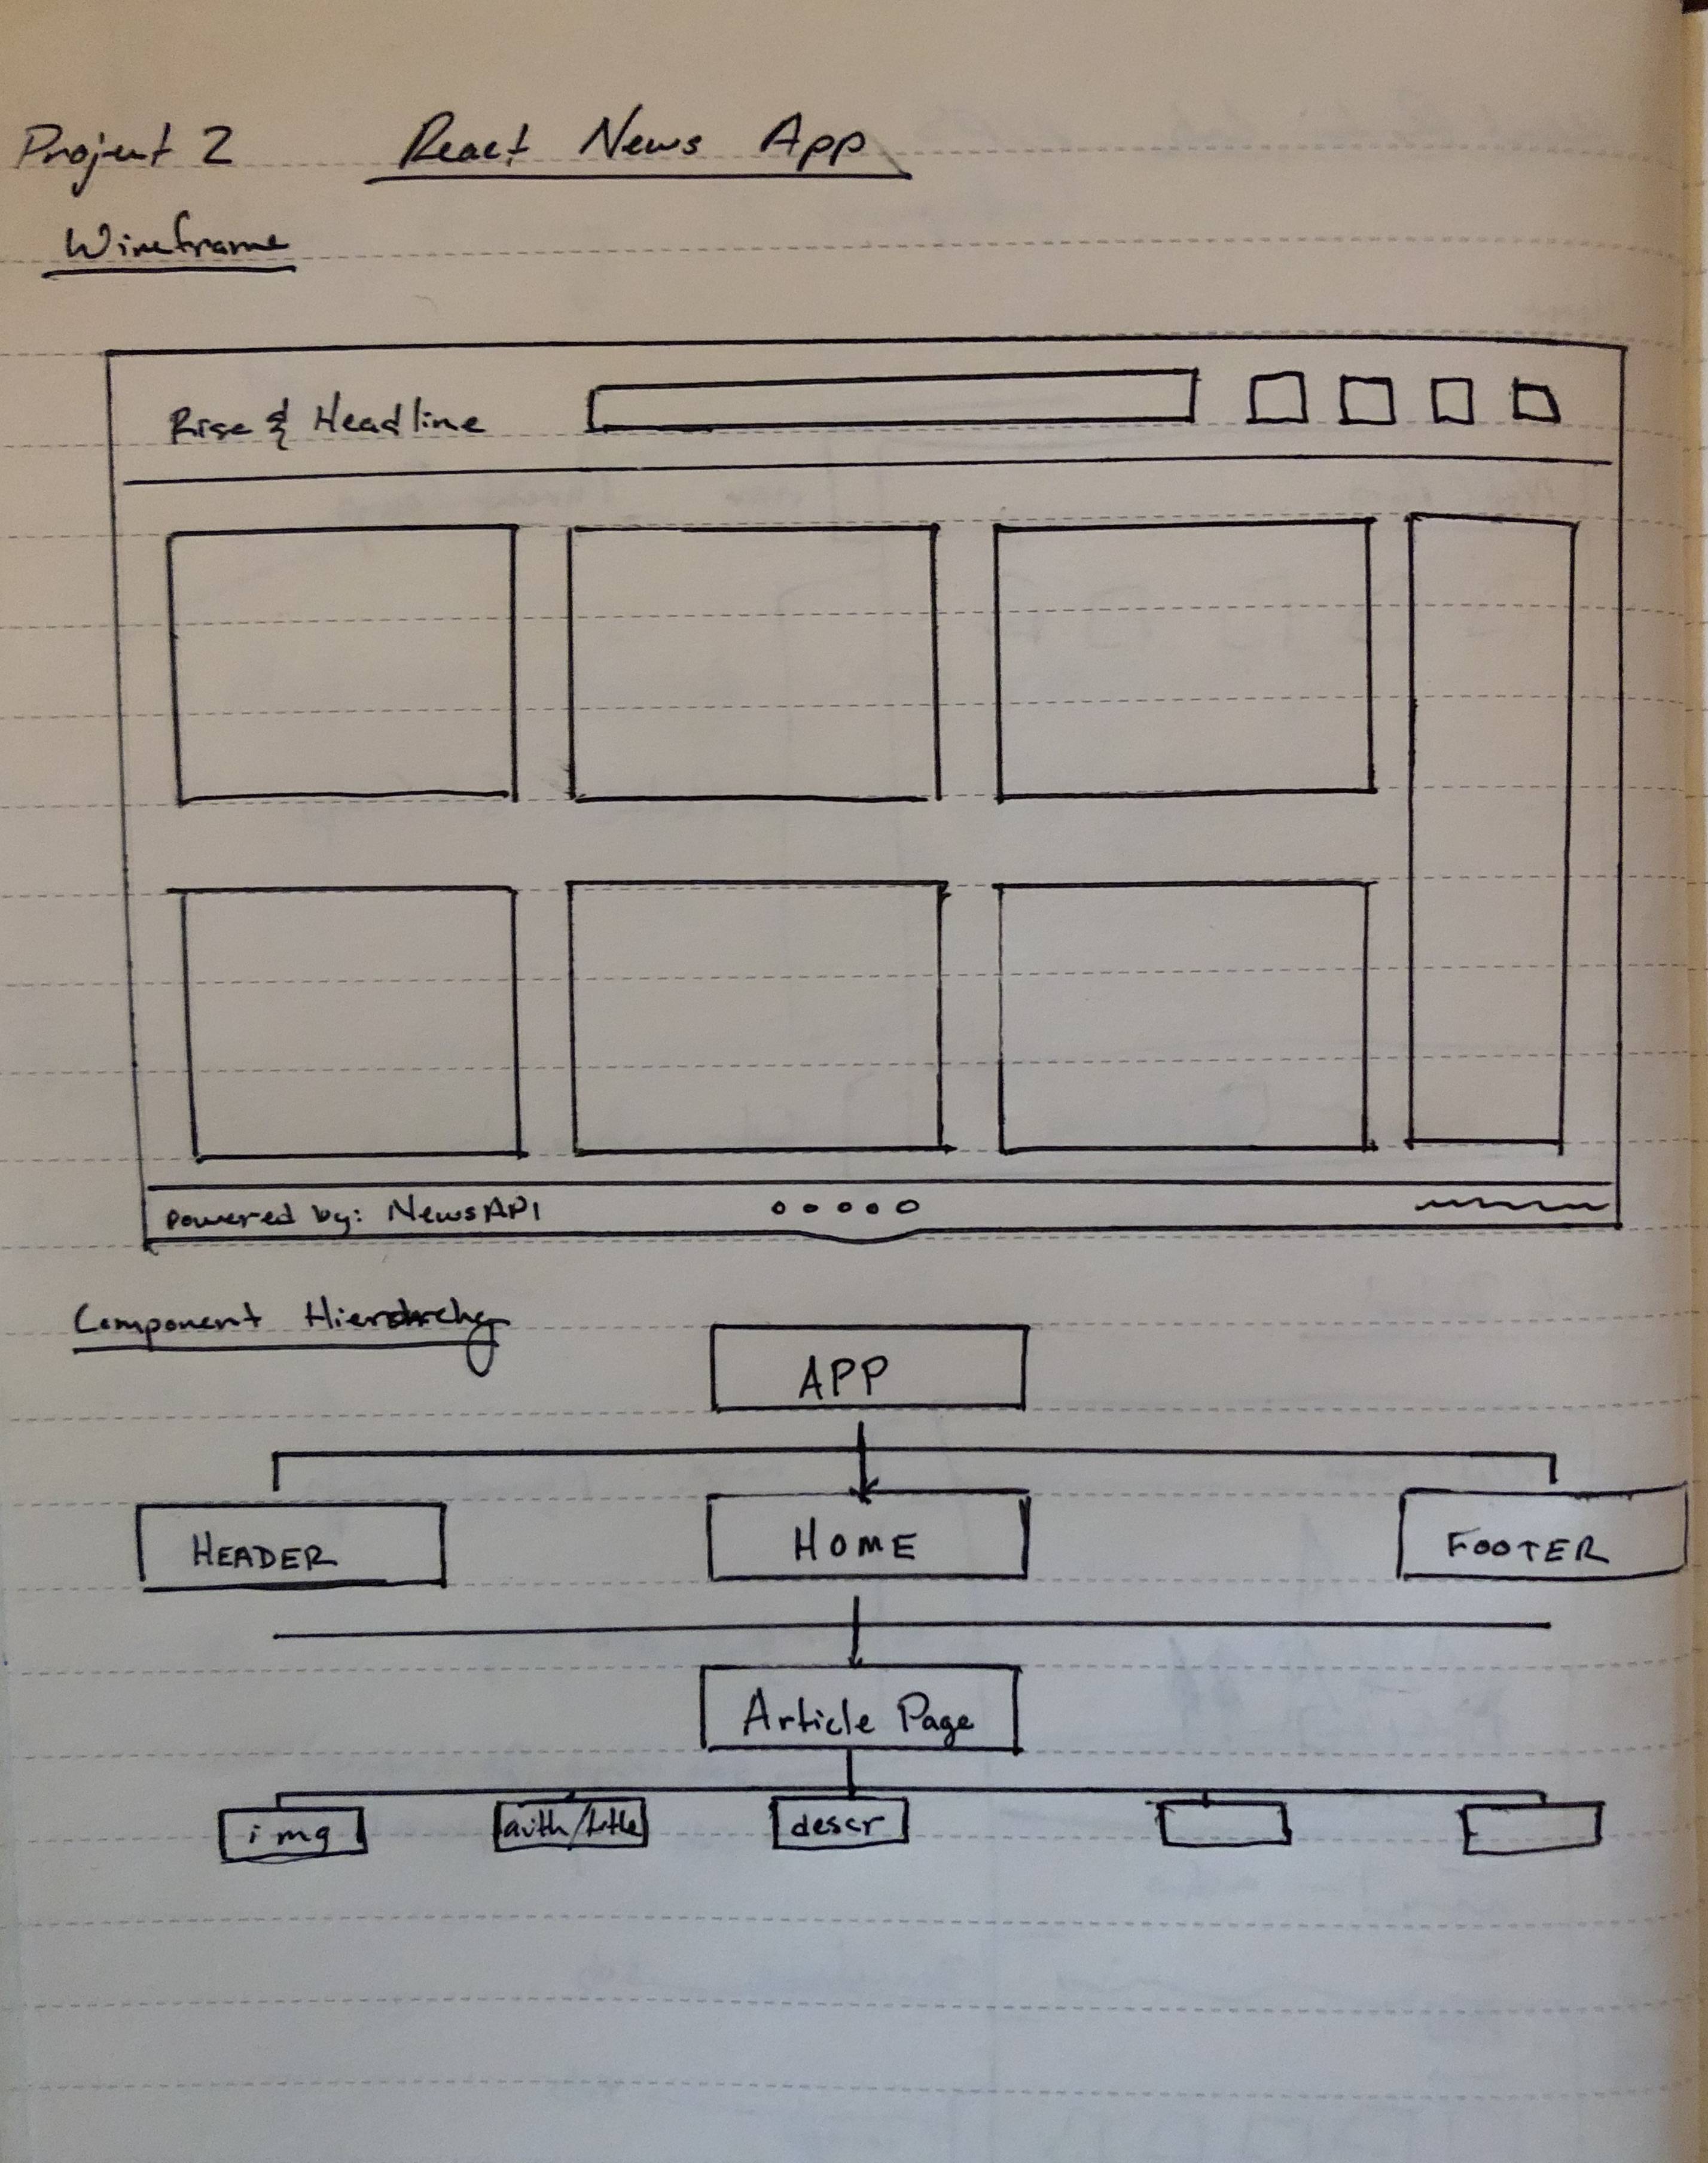 Project 2 React News App
Wireframe
Rise & Headline
powered by: NewsAPI
Component Hierarchy
APP
HEADER HOME FOOTER
Article Page
img auth/title descr